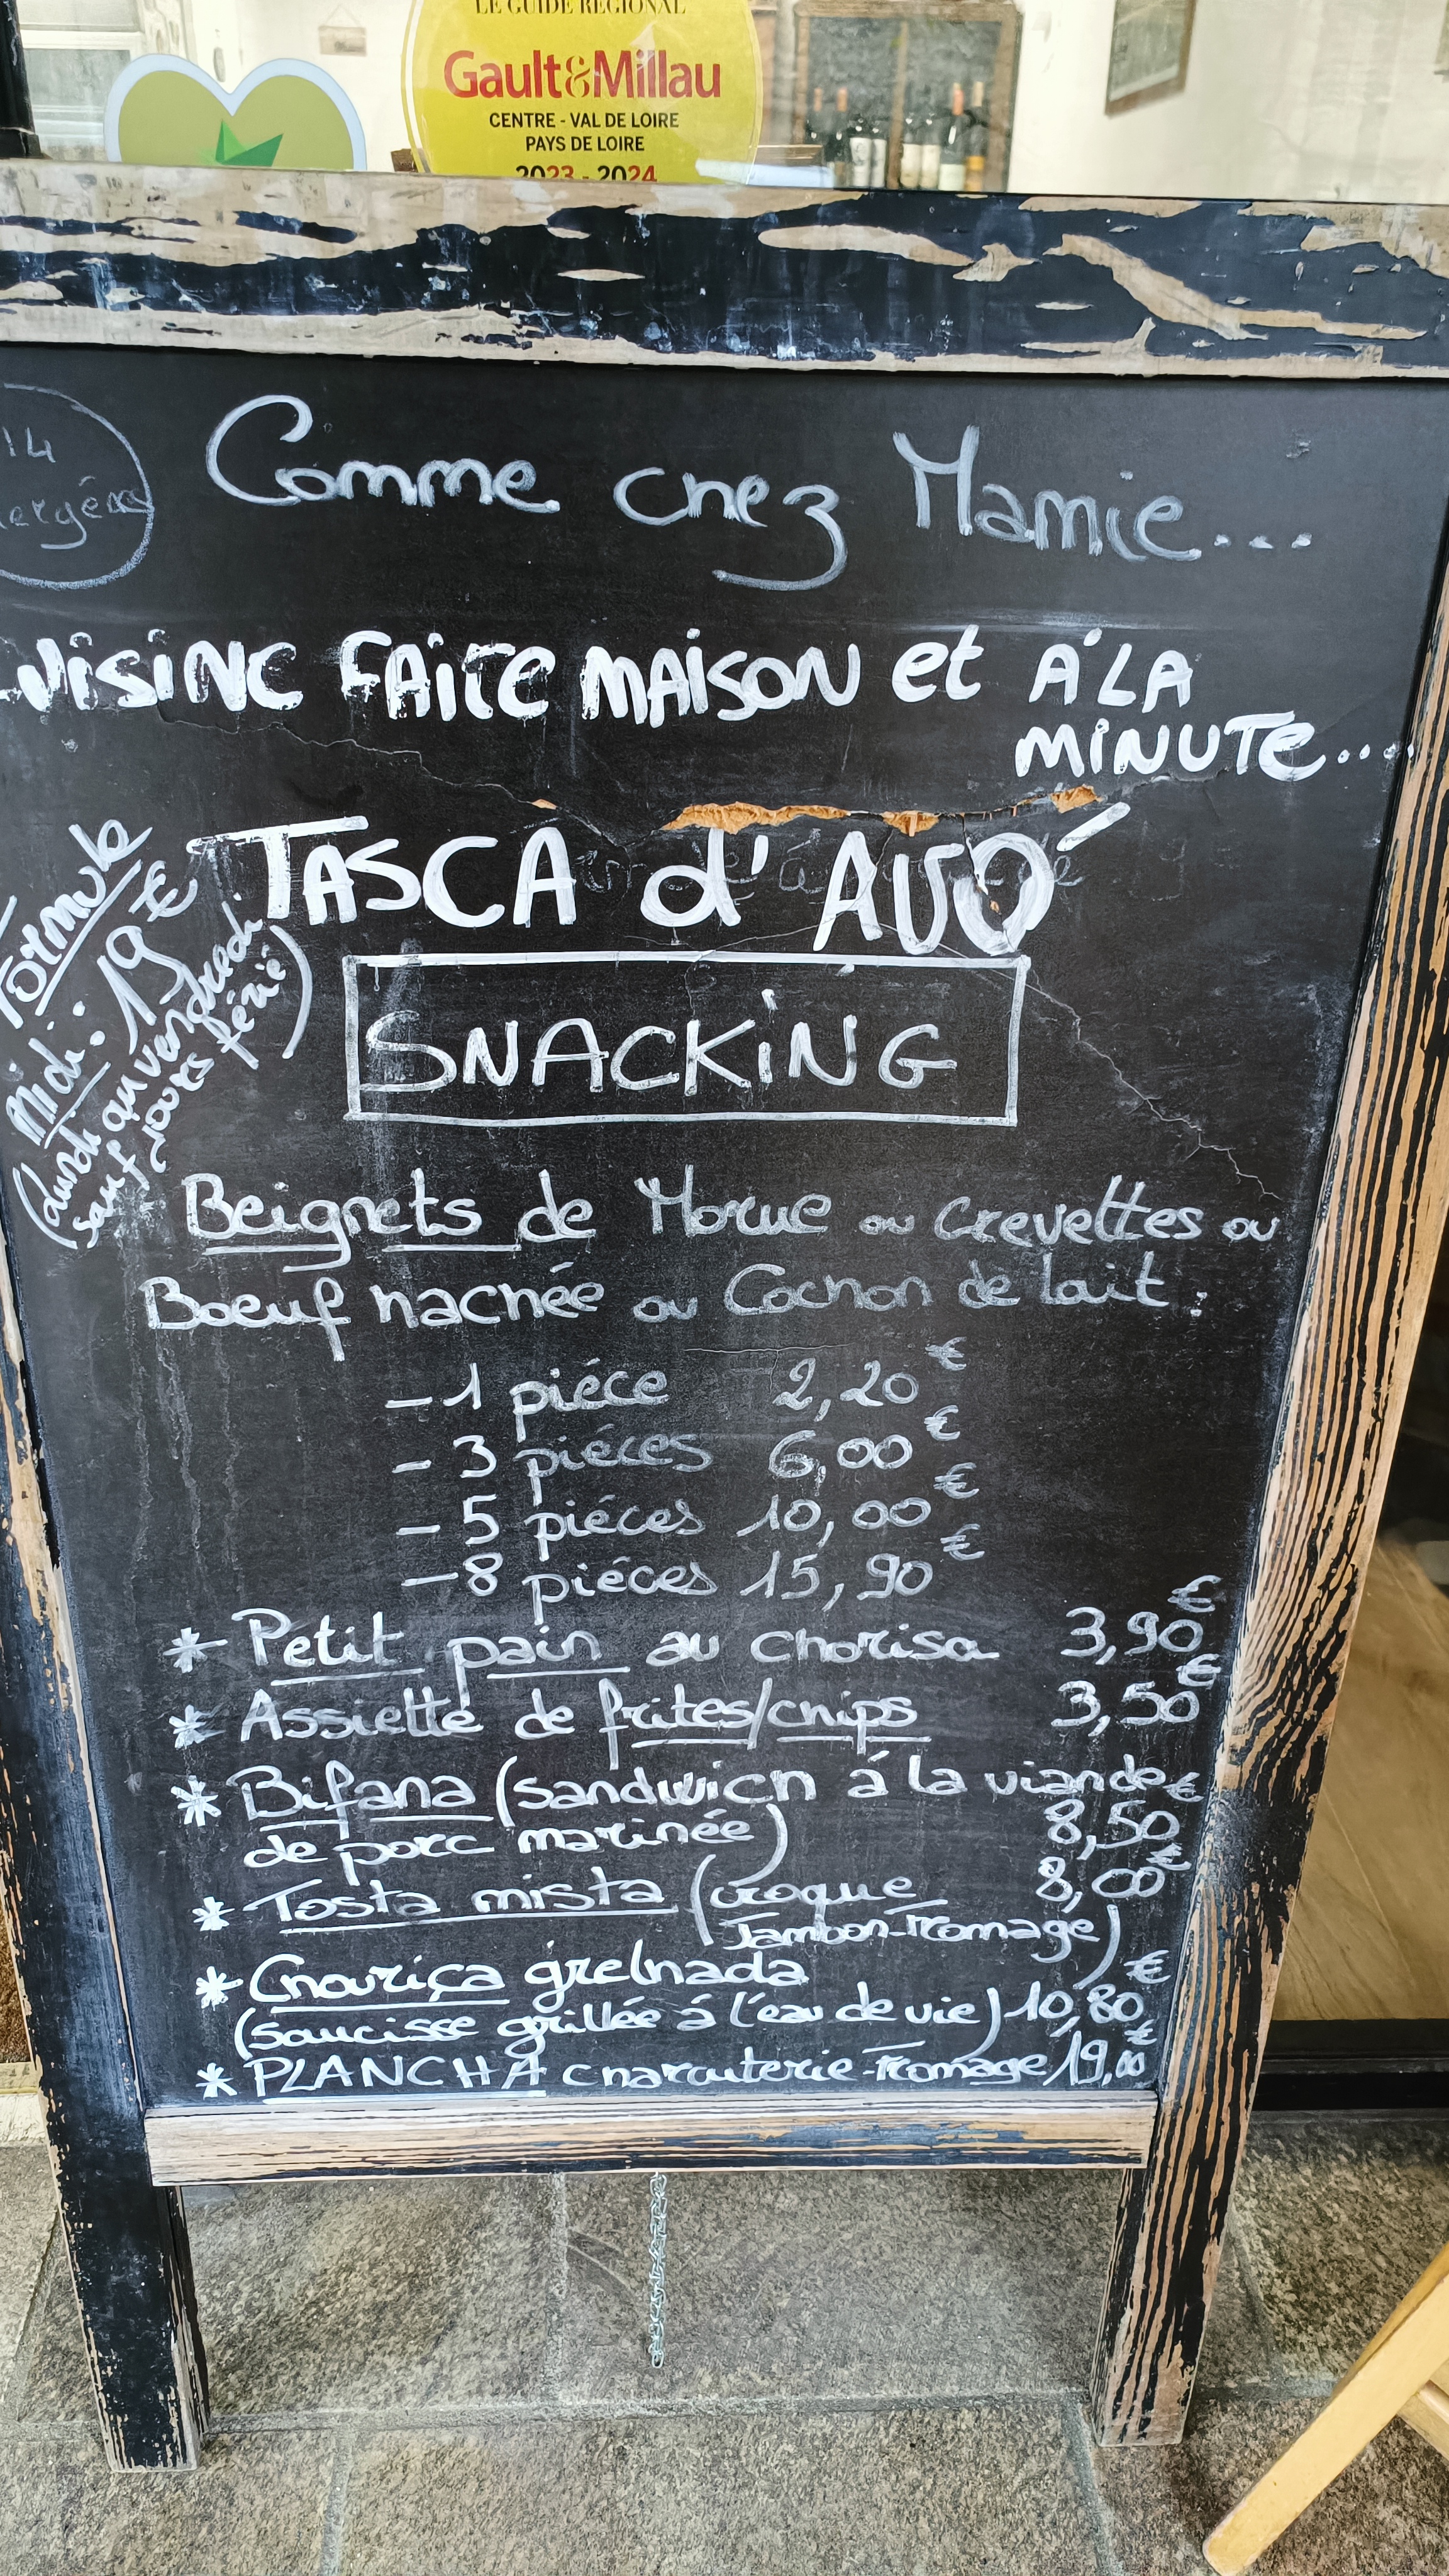 LE GUIDE RÉGIONAL
Gault&Millau
CENTRE - VAL DE LOIRE
PAYS DE LOIRE
2023 - 2024
14
Comme chez Mamie...
UISINE FAITE MAISON et À LA
MINUTE....
TASCA d'AVÓ
Formule
Midi: 19€
(lundi au vendredi
sauf jours férié)
SNACKING
Beignets de Morue ou Crevettes ou
Boeuf hachée ou Cochon de lait :
- 1 piéce 2,20€
- 3 piéces 6,00€
- 5 piéces 10,00€
- 8 piéces 15,90€
* Petit pain au chorisa 3,90€
* Assiette de frites/chips 3,50€
* Bifana (sandwich á la viande
de porc marinée) 8,50€
* Tosta mista (croque 8,00€
Jambon-Fromage)
* Chouriça grelhada
(saucisse grillée á l'eau de vie) 10,80€
* PLANCHA charcuterie-Fromage 19,00€